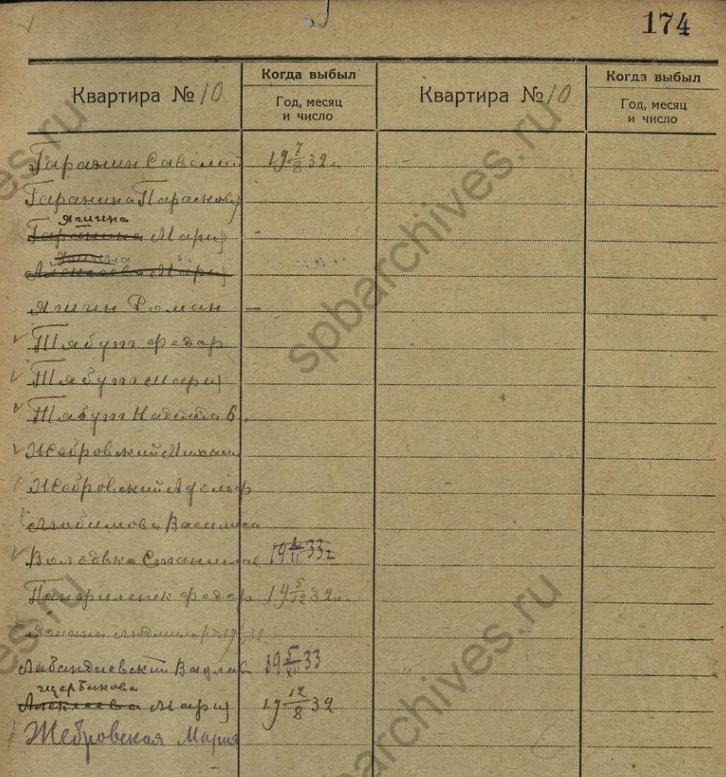 174
Квартира № 10
Когда выбыл
Год, месяц
и число
Квартира № 10
Когда выбыл
Год, месяц
и число
Гаранин Савелий 19 7/8 32 г.
Гаранина Парасковья
Яшгина
Гаранина Мария
Алексеева Мария
Роман
Тябут Федор
Тябут Мария
Тябут Надежда
Жебровский Михаил
Жебровский Адольф
Любимова Василиса
Володько Станислав
Федор 19 5/12 32 г.
Людмила
Вадлав 19 5/XII 33
Щербакова
Алексеева Мария 19 12/8 32
Жебровская Мария
spbarchives.ru